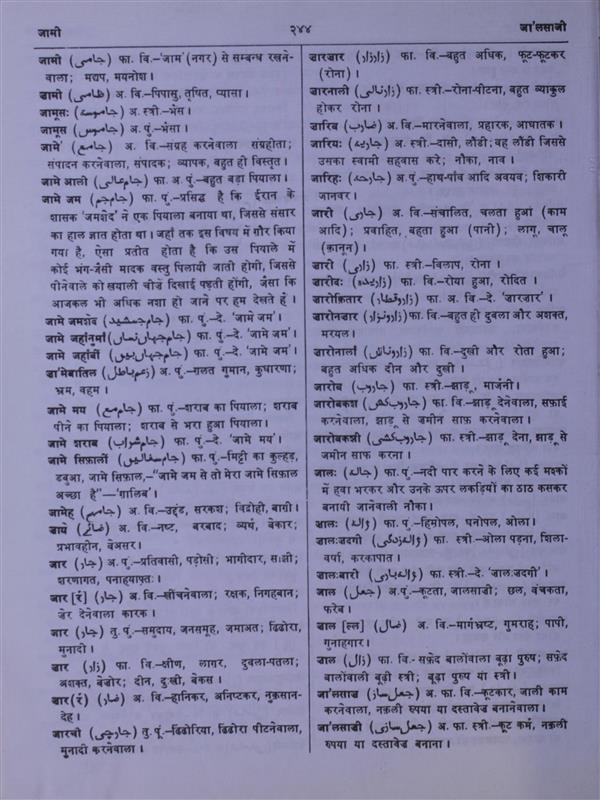 जामी
२४४
जा'लसाज़ी
जामी (جامی) फा. वि.–'जाम' (नगर) से सम्बन्ध रखने-
वाला; मद्यप, मयनोश।
ज़ामी (ظامی) अ. वि.–पिपासु, तृषित, प्यासा।
जामूसः (جاموسہ) अ. स्त्री.–भैंस।
जामूस (جاموس) अ. पुं.–भैंसा।
जामे' (جامع) अ. वि.–संग्रह करनेवाला संग्रहीता;
संपादन करनेवाला, संपादक; व्यापक, बहुत ही विस्तृत।
जामे आली (جام عالی) फा. अ. पुं.–बहुत बड़ा पियाला।
जामे जम (جام جم) फा. पुं.–प्रसिद्ध है कि ईरान के
शासक 'जमशेद' ने एक पियाला बनाया था, जिससे संसार
का हाल ज्ञात होता था। जहाँ तक इस विषय में गौर किया
गया है, ऐसा प्रतीत होता है कि उस पियाले में
कोई भंग-जैसी मादक वस्तु पिलायी जाती होगी, जिससे
पीनेवाले को खयाली चीज़ें दिखाई पड़ती होंगी, जैसा कि
आजकल भी अधिक नशा हो जाने पर हम देखते हैं।
जामे जमशेद (جام جمشید) फा. पुं.–दे. 'जामे जम'।
जामे जहाँनुमाँ (جام جہاں نماں) फा. पुं.–दे. 'जामे जम'।
जामे जहाँबीं (جام جہاں بیں) फा. पुं.–दे. 'जामे जम'।
ज़ा'मेबातिल (زعم باطل) अ. पुं.–ग़लत गुमान, कुधारणा;
भ्रम, वहम।
जामे मय (جام مے) फा. पुं.–शराब का पियाला; शराब
पीने का पियाला; शराब से भरा हुआ पियाला।
जामे शराब (جام شراب) फा. पुं.–दे. 'जामे मय'।
जामे सिफ़ालीं (جام سفالیں) फा. पुं.–मिट्टी का कुल्हड़,
डबुआ, जामे सिफ़ाल,–"जामे जम से तो मेरा जामे सिफ़ाल
अच्छा है"–'ग़ालिब'।
जामेह (جامح) अ. वि.–उद्दंड, सरकश; विद्रोही, बाग़ी।
ज़ाये (ضائع) अ. वि.–नष्ट, बरबाद; व्यर्थ, बेकार;
प्रभावहीन, बेअसर।
जार (جار) अ. पुं.–प्रतिवासी, पड़ोसी; भागीदार, साझी;
शरणागत, पनाहयाफ़्तः।
जार [र्र] (جار) अ. वि.–खींचनेवाला; रक्षक, निगहबान;
ज़ेर देनेवाला कारक।
जार (جار) तु. पुं.–समुदाय, जनसमूह, जमाअत; ढिंढोरा,
मुनादी।
ज़ार (زار) फा. वि.–क्षीण, लागर, दुबला-पतला;
अशक्त, बेज़ोर; दीन, दुःखी, बेकस।
ज़ार(र्र) (ضار) अ. वि.–हानिकर, अनिष्टकर, नुक़सान-
देह।
जारची (جارچی) तु. पुं.–ढिंढोरिया, ढिंढोरा पीटनेवाला,
मुनादी करनेवाला।
ज़ारज़ार (زارزار) फा. वि.–बहुत अधिक, फूट-फूटकर
(रोना)।
ज़ारनाली (زارنالی) फा. स्त्री.–रोना-पीटना, बहुत व्याकुल
होकर रोना।
ज़ारिब (ضارب) अ. वि.–मारनेवाला, प्रहारक, आघातक।
जारियः (جاریہ) अ. स्त्री.–दासी, लौंडी; वह लौंडी जिससे
उसका स्वामी सहवास करे; नौका, नाव।
जारिहः (جارحہ) अ. पुं.–हाथ-पाँव आदि अवयव; शिकारी
जानवर।
जारी (جاری) अ. वि.–संचालित, चलता हुआ (काम
आदि); प्रवाहित, बहता हुआ (पानी); लागू, चालू
(क़ानून)।
ज़ारी (زاری) फा. स्त्री.–विलाप, रोना।
ज़ारीदः (زاریدہ) फा. वि.–रोया हुआ, रोदित।
ज़ारोक़ितार (زاروقطار) फा. अ. वि.–दे. 'ज़ारज़ार'।
ज़ारोनज़ार (زارونزار) फा. वि.–बहुत ही दुबला और अशक्त,
मरयल।
ज़ारोनालाँ (زارونالاں) फा. वि.–दुखी और रोता हुआ;
बहुत अधिक दीन और दुखी।
जारोब (جاروب) फा. स्त्री.–झाड़ू, मार्जनी।
जारोबकश (جاروب کش) फा. वि.–झाड़ू देनेवाला, सफ़ाई
करनेवाला, झाड़ू से जमीन साफ़ करनेवाला।
जारोबकशी (جاروب کشی) फा. स्त्री.–झाड़ू देना, झाड़ू से
जमीन साफ करना।
जालः (جالہ) फा. पुं.–नदी पार करने के लिए कई मश्कों
में हवा भरकर और उनके ऊपर लकड़ियों का ठाठ कसकर
बनायी जानेवाली नौका।
ज़ालः (ژالہ) फा. पुं.–हिमोपल, घनोपल, ओला।
ज़ालःज़दगी (ژالہ زدگی) फा. स्त्री.–ओला पड़ना, शिला-
वर्षा, करकापात।
ज़ालःबारी (ژالہ باری) फा. स्त्री.–दे. 'ज़ालःज़दगी'।
जाल (جعل) अ. पुं.–कूटता, जालसाज़ी; छल, वंचकता,
फरेब।
ज़ाल [ल्ल] (ضال) अ. वि.–मार्गभ्रष्ट, गुमराह; पापी,
गुनाहगार।
ज़ाल (زال) फा. वि.–सफ़ेद बालोंवाला बूढ़ा पुरुष; सफ़ेद
बालोंवाली बूढ़ी स्त्री; बूढ़ा पुरुष या स्त्री।
जा'लसाज़ (جعل ساز) अ. फा. वि.–कूटकार, जाली काम
करनेवाला, नक़ली रुपया या दस्तावेज़ बनानेवाला।
जा'लसाज़ी (جعل سازی) अ. फा. स्त्री.–कूट कर्म, नक़ली
रुपया या दस्तावेज़ बनाना।